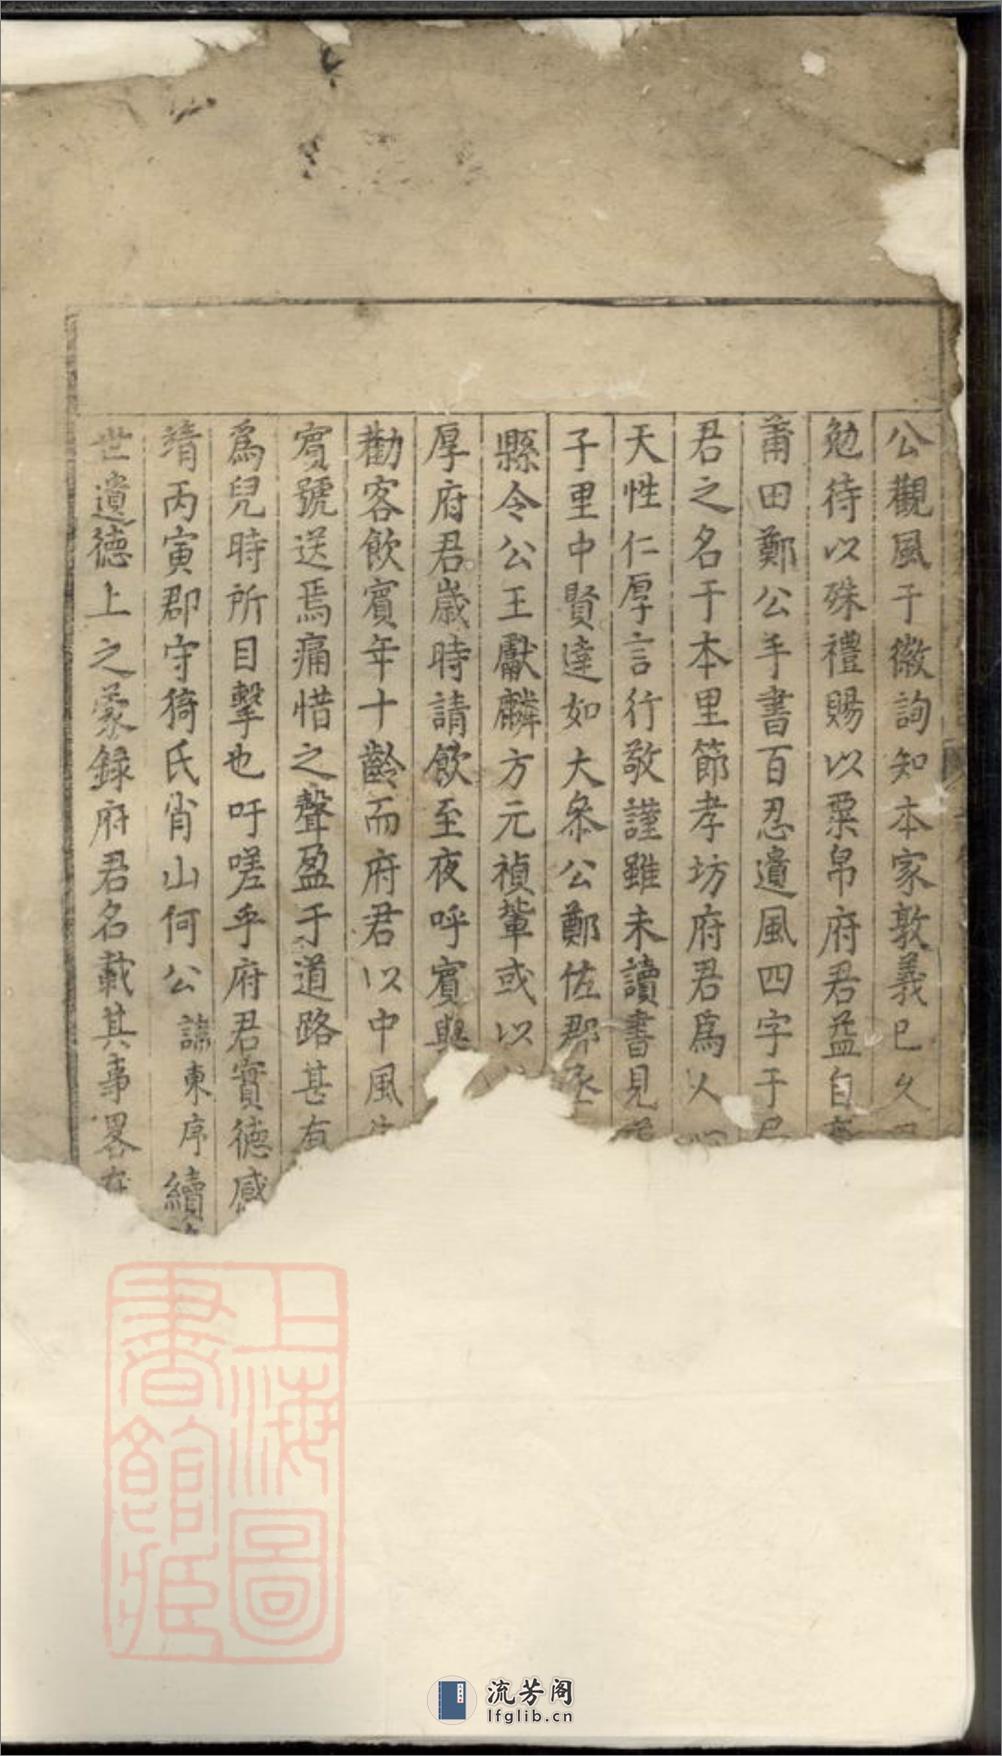 公觀風于徽詢知本家敦義已久
勉待以殊禮賜以粟帛府君益自
莆田鄭公手書百忍遺風四字于
君之名于本里節孝坊府君爲人
天性仁厚言行敬謹雖未讀書見
子里中賢達如大叅公鄭佐郡丞
縣令公王獻麟方元禎輩或以
厚府君歲時請飲至夜呼賓與
勸客飲賓年十齡而府君以中風
賓號送焉痛惜之聲盈于道路甚有
爲兒時所目擊也吁嗟乎府君實德感
靖丙寅郡守猗氏肖山何公東序續
世遺德上之蒙錄府君名載其事畧在
上海圖
書館藏
流芳阁
lfglib.cn